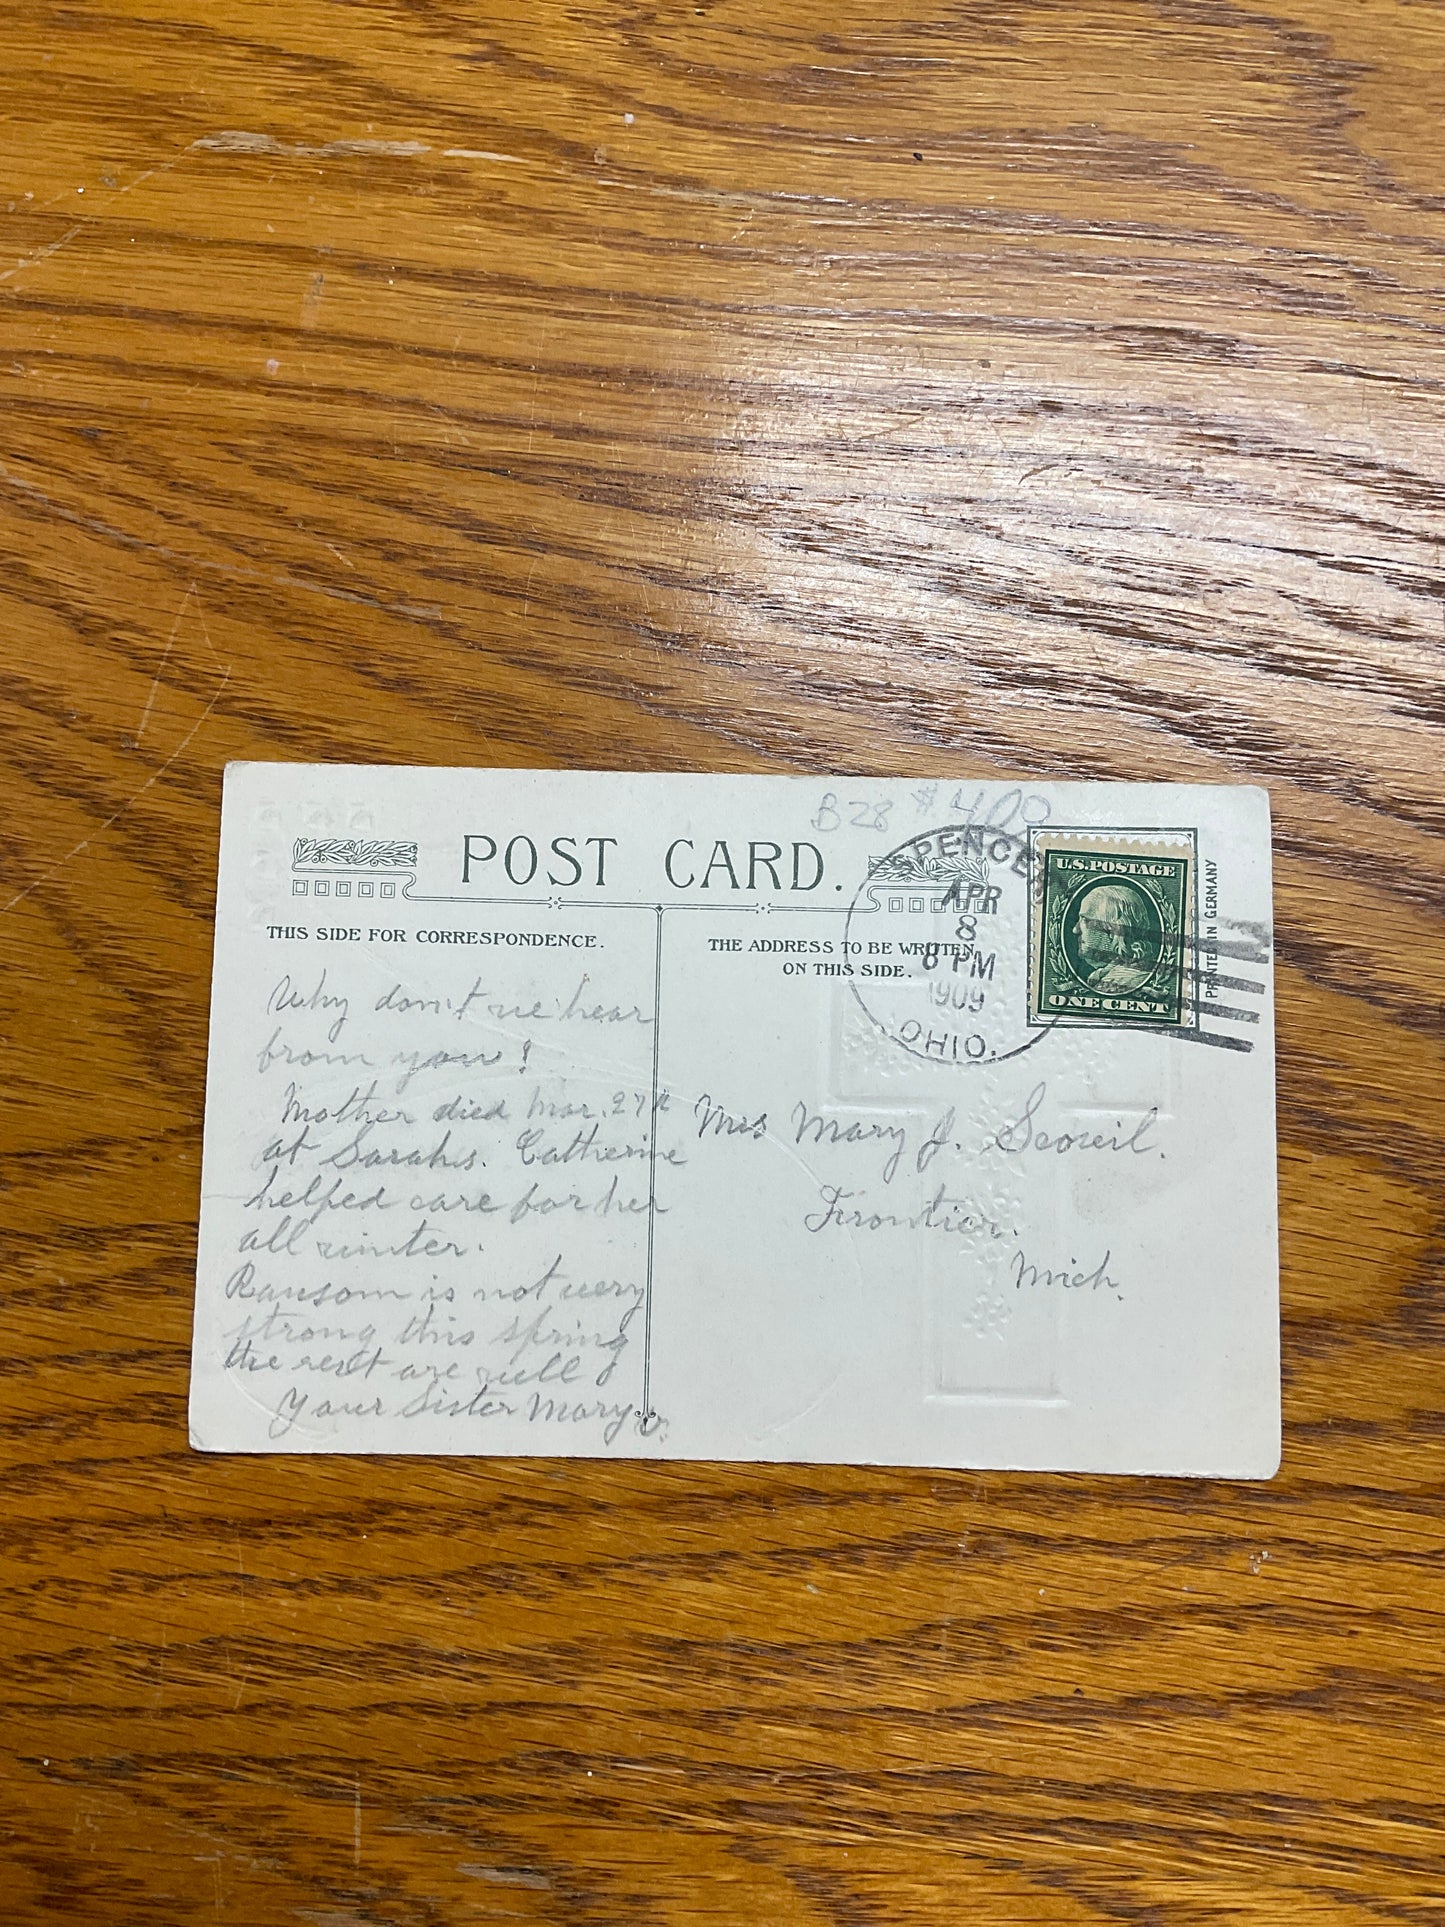 B28 $4.00
POST CARD.
THIS SIDE FOR CORRESPONDENCE.
THE ADDRESS TO BE WRITTEN
ON THIS SIDE.
SPENCER
APR
8
8 PM
1909
OHIO.
U.S. POSTAGE
ONE CENT
PRINTED IN GERMANY
Why don't we hear
from you!
Mother died Mar. 27th
at Sarahs. Catherine
helped care for her
all winter.
Ransom is not very
strong this spring
the rest are well
Your Sister Mary
Mrs Mary J. Scovil.
Frontier.
Mich.